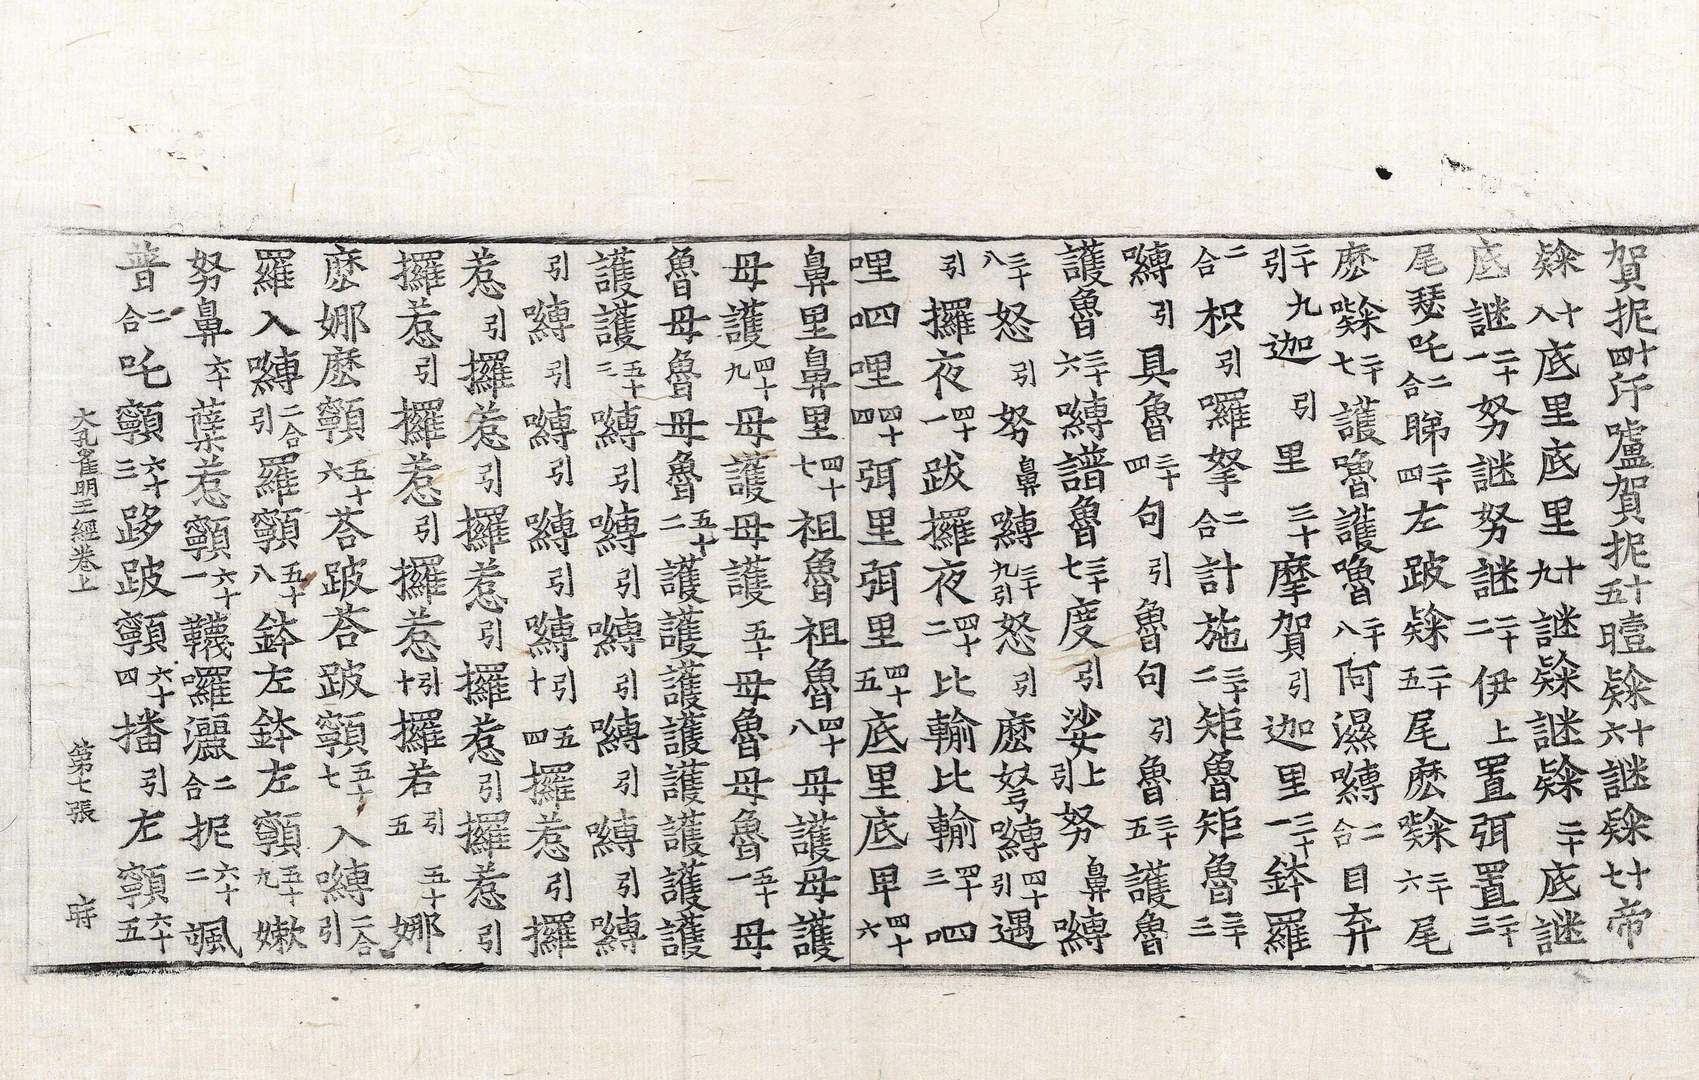 賀抳十四汘嚧賀抳十五曀㘑十六謎㘑十七帝
㘑十八底里底里十九謎㘑謎㘑二十底謎
底謎二十一努謎努謎二十二伊上置弭置二十三
尾瑟吒二合睇二十四左跛㘑二十五尾麽㘑二十六尾
麽㘑二十七護嚕護嚕二十八阿濕嚩二合目弃
引二十九迦引里三十摩賀引迦里三十一鉢羅
二合枳引囉拏二合計施三十二矩魯矩魯三十三
嚩引具魯三十四句引魯句引魯三十五護魯
護魯三十六嚩譜魯三十七度引娑上引努鼻嚩
三十八怒引努鼻嚩三十九引怒引麽努嚩四十引遇
引攞夜四十一跋攞夜四十二比輸比輸四十三呬
哩呬哩四十四弭里弭里四十五底里底里四十六
鼻里鼻里四十七祖魯祖魯四十八母護母護
母護四十九母護母護五十母魯母魯五十一母
魯母魯母魯五十二護護護護護護護
護護五十三嚩引嚩引嚩引嚩引嚩引嚩
引嚩引嚩引嚩引嚩引十五四攞惹引攞
惹引攞惹引攞惹引攞惹引攞惹引
攞惹引攞惹引攞惹引十攞若引五五十娜
麽娜麽顊五十六荅跛荅跛顊五十七入嚩引二合
羅入嚩二合引羅顊五十八鉢左鉢左顊五十九嫩
努鼻六十蘖惹顊六十一韈囉灑二合抳六十二颯
普二合吒顊六十三跢跛顊六十四播引左顊六十五
大孔雀明王經卷上 第七張 時